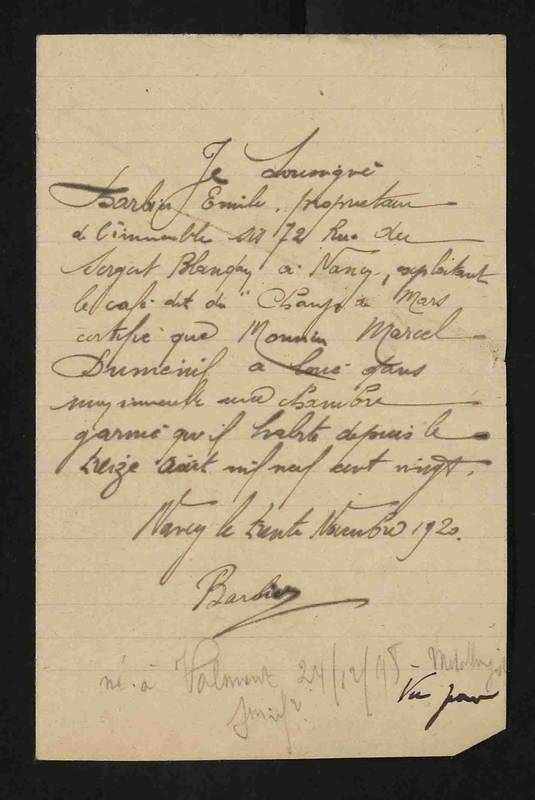 Je Soussigné
Barbier Emile, propriétaire
de l'immeuble sis 72 Rue du
Sergent Blandan à Nancy, exploitant
le café dit du "Champ de Mars
certifie que Monsieur Marcel
Dumenil a loué dans
mon immeuble une chambre
garnie qu'il habite depuis le
treize août mil neuf cent vingt.
Nancy le trente Novembre 1920.
Barbier
né à Valmont 24/12/98 -
Vu pour